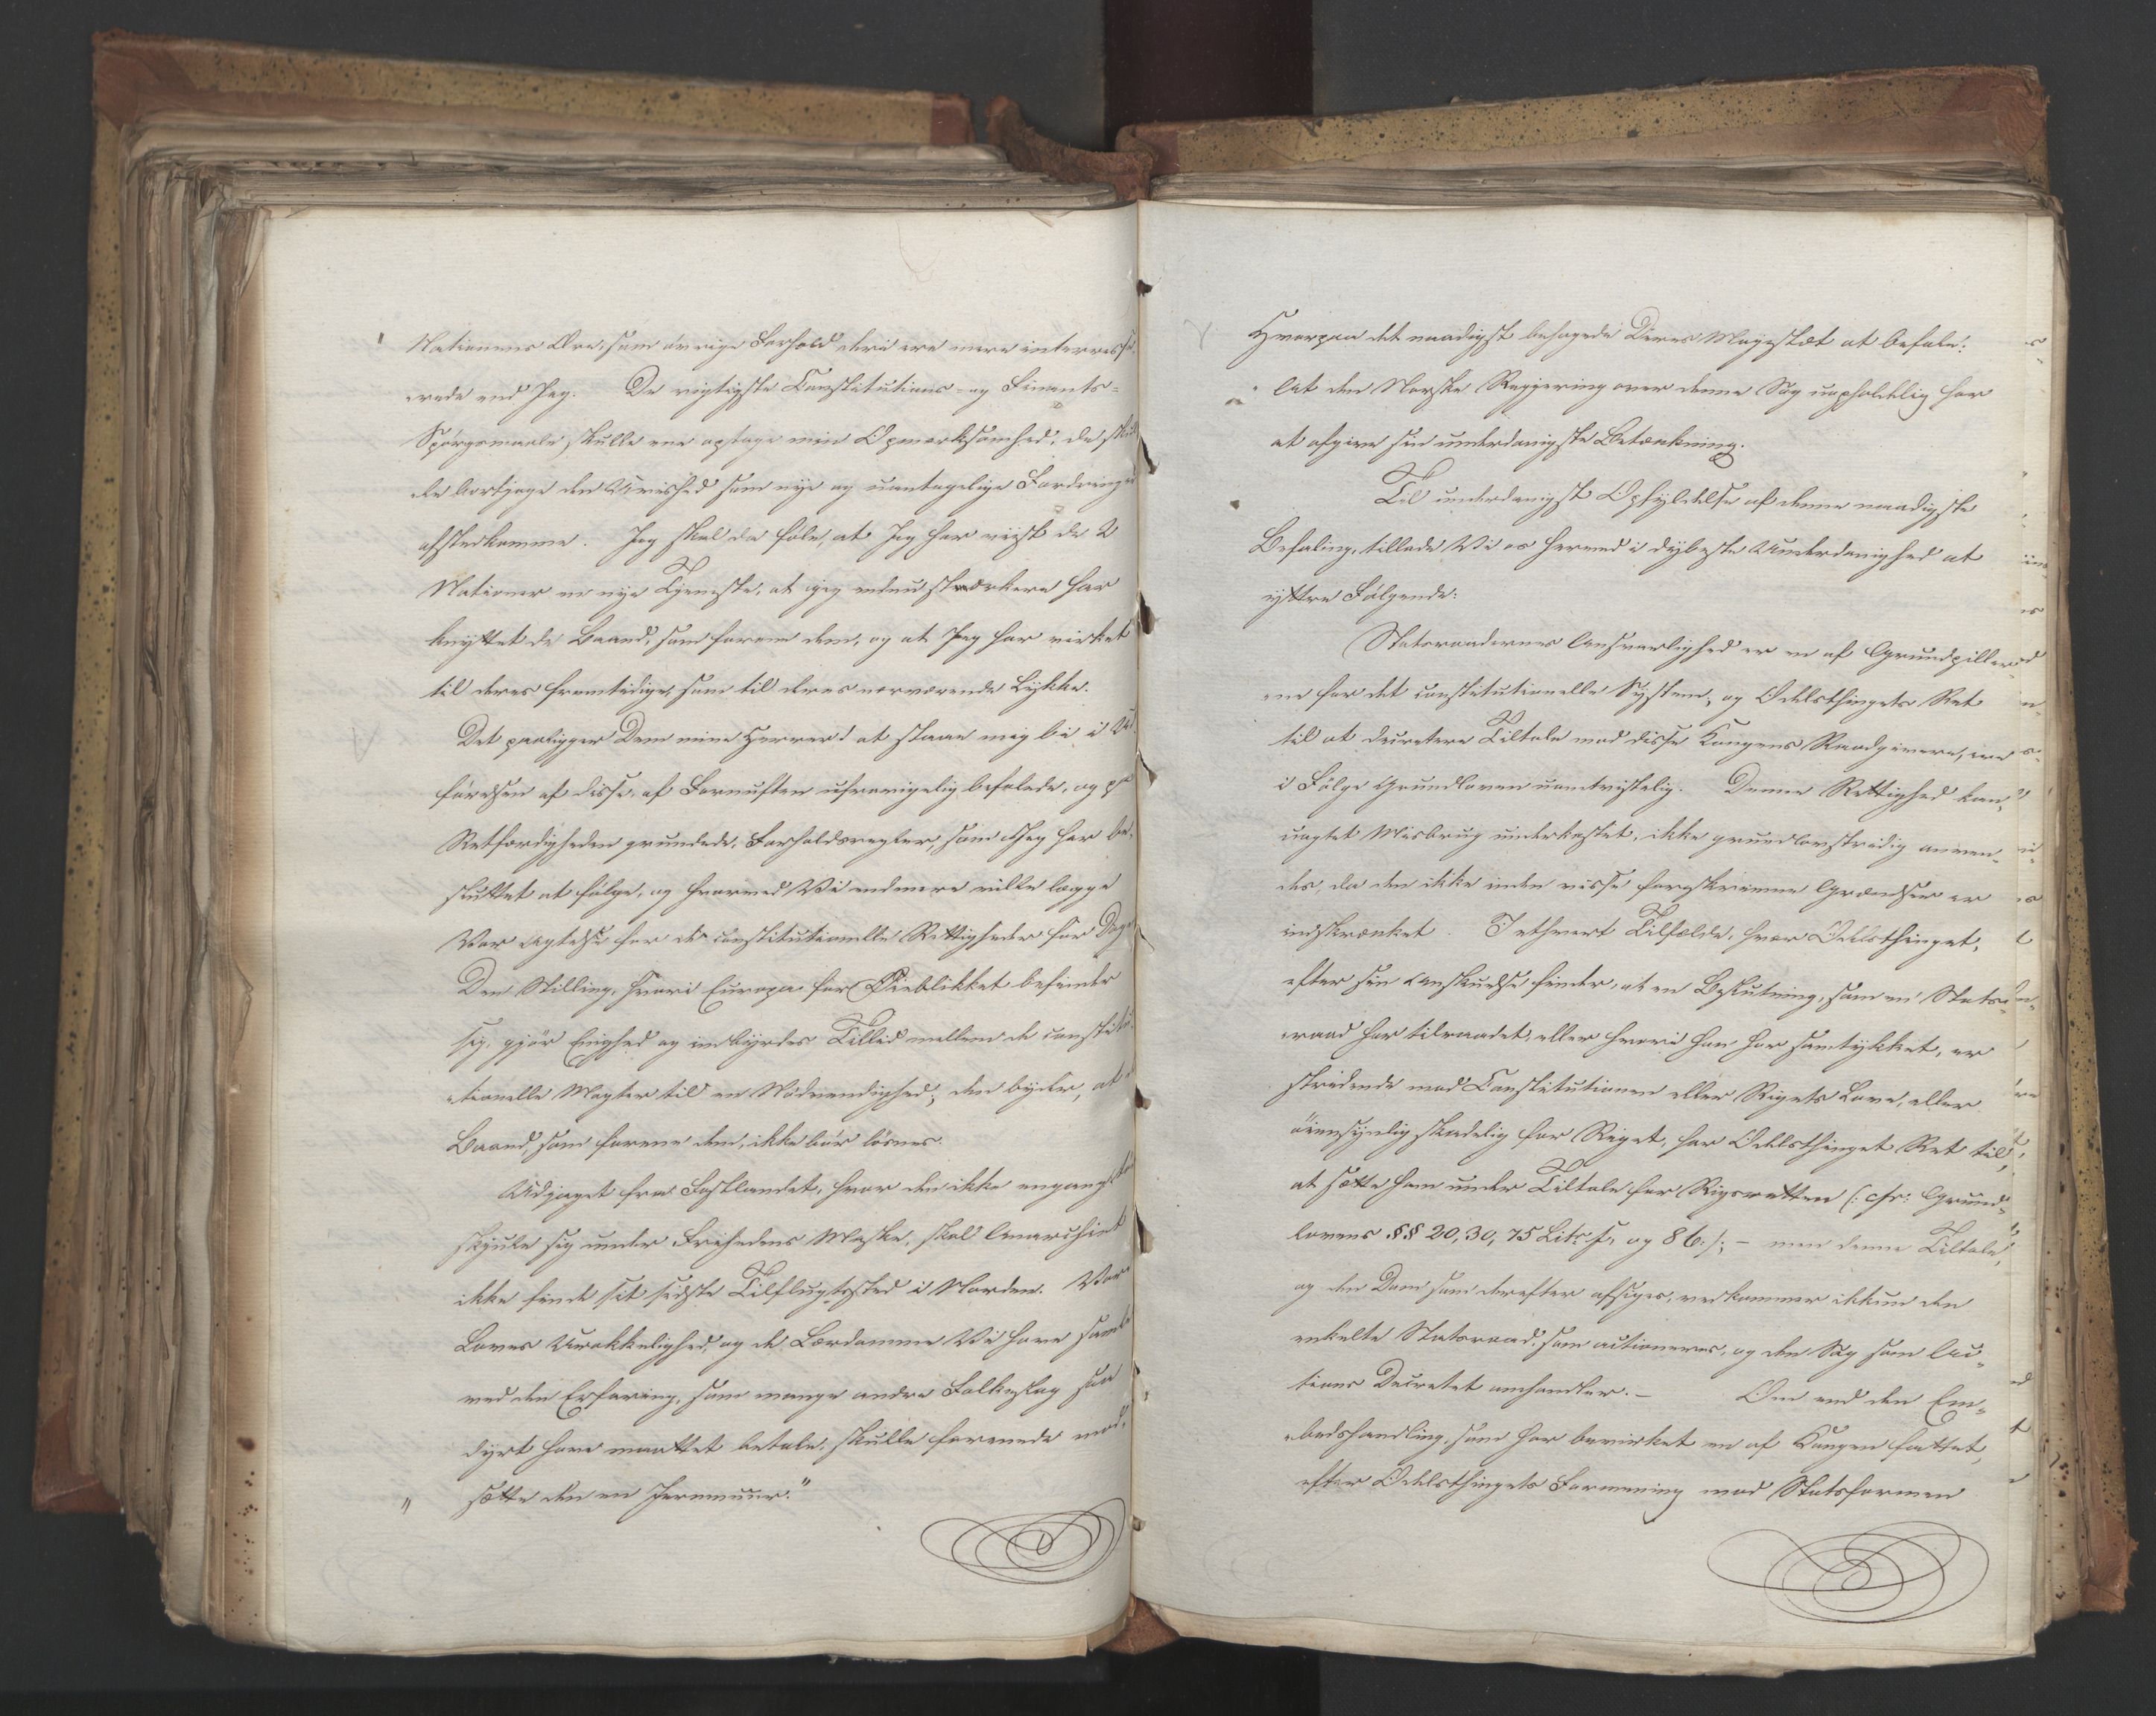 Nationens Ære, som øvrige Forhold deri ere mere interresse-
rede end Jeg. De vigtigste Constitutions- og Finants-
Spørgsmaale skulle ene optage min Opmærksomhed, de skul
de bortjage den Uvished som nye og uantagelige Fordringer
afstedkomme. Jeg skal da føle, at Jeg har viist de 2
Nationer en nye Tjeneste, at jeg endnu stærkere har
knyttet de Baand, som forene dem, og at Jeg har virket
til deres fremtidige, som til deres nærværende Lykke.
Det paaligger Dem mine Herrer! at staae mig bi i Ud-
førelsen af disse, af Fornuften ufravigelig befalede, og paa
Retfærdigheden grundede, Forholdsregler, som Jeg har be-
sluttet at følge, og hvormed Vi endmere ville lægge
Vor Agtelse for de constitutionelle Rettigheder for Dagen
Den Stilling, hvori Europa for Øieblikket befinder
sig, gjør Enighed og indbyrdes Tillid mellem de constitu-
tionelle Magter til en Nødvendighed; den byder, at de
Baand, som forene dem, ikke bør løsnes.
Udjaget fra Fastlandet, hvor den ikke engang kan
skjule sig under Frihedens Maske, skal Anarchiet
ikke finde sit sidste Tilflugtssted i Norden. Vore
Loves Urokkelighed, og de Lærdomme Vi have samlet
ved den Erfaring, som mange andre Folkeslag saa
dyrt have maattet betale, skulle forenede mod-
" sætte den en Jernmuur."
Hvorpaa det naadigst behagede Deres Majestæt at befale:
At den Norske Regjering over denne Sag uopholdelig har
at afgive sin underdanigste Betænkning.
Til underdanigst Opfyldelse af denne naadigste
Befaling, tillade Vi os herved i dybeste Underdanighed at
yttre Følgende:
Statsraadernes Ansvarlighed er en af Grundpiller-
ne for det constitutionelle System, og Odelsthingets Ret
til at decretere Tiltale mod disse Kongens Raadgivere, er
i Følge Grundloven uomtvistelig. Denne Rettighed kan,
uagtet Misbrug underkastet, ikke grundlovstridig anven-
des, da den ikke inden visse foreskrevne Grændser er
indskrænket. I ethvert Tilfælde, hvor Odelsthinget,
efter sin Anskuelse finder, at en Beslutning, som en Stats-
raad har tilraadet, eller hvori han har samtykket, er
stridende mod Constitutionen eller Rigets Love, eller
øiensynlig skadelig for Riget, har Odelsthinget Ret til,
at sætte ham under Tiltale for Rigsretten (: cfr: Grund-
lovens §§ 20, 30, 75 Litr f, og 86:); - men denne Tiltale,
og den Dom som derefter afsiges, vedkommer ikkun den
enkelte Statsraad, som actioneres, og den Sag som Ac-
tions Decretet omhandler. - Om end den Em-
bedshandling, som har bevirket en af Kongen fattet,
efter Odelsthingets Formening mod Statsformen